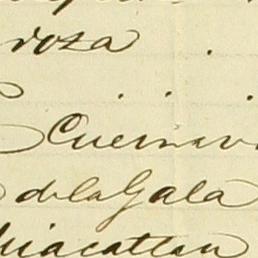 roza
Cuernav
de la Gala
huacatlan